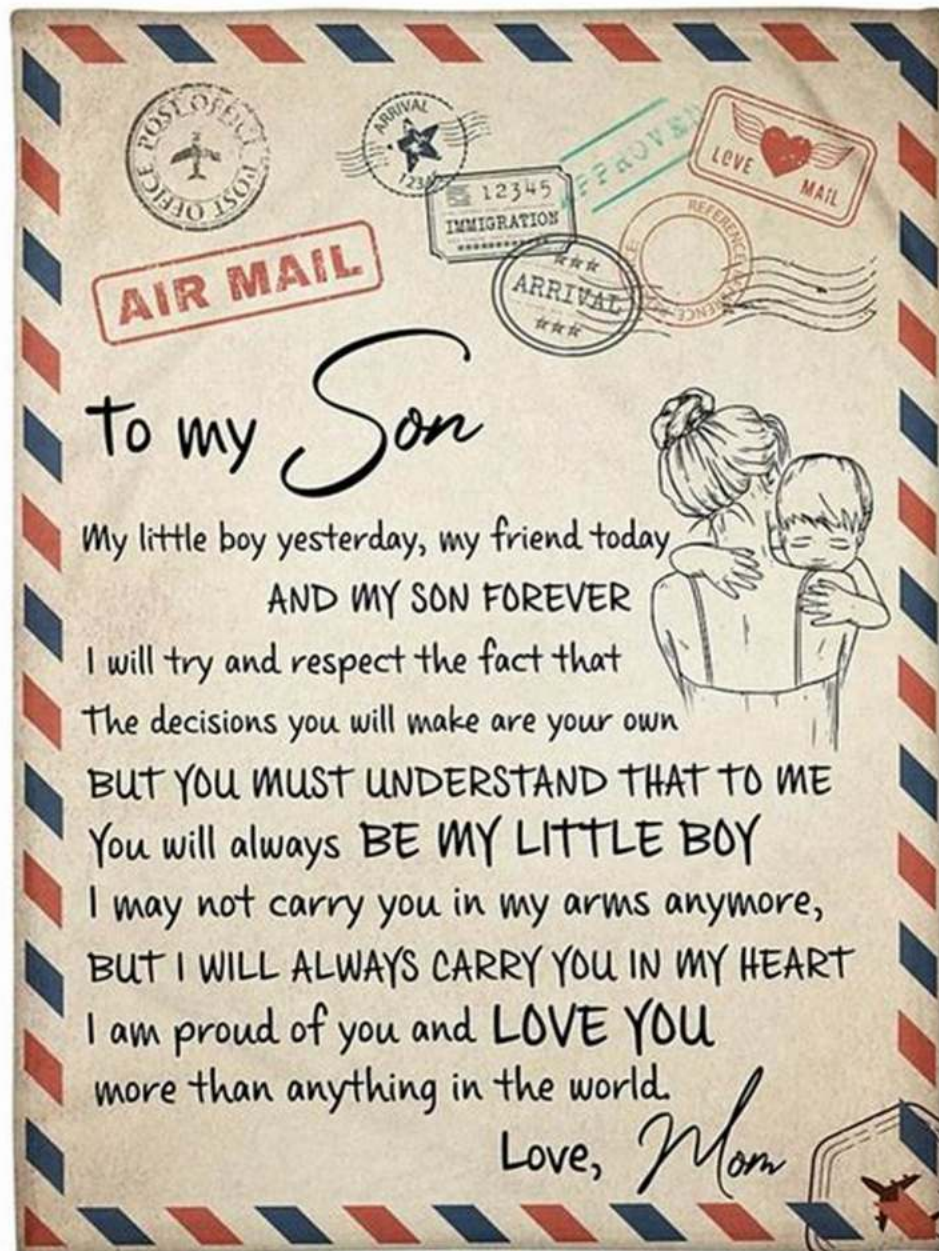 POST OFFICE POST OFFICE
ARRIVAL
123
12345
IMMIGRATION
APPROVED
LOVE
MAIL
ARRIVAL
REFERENCE
AIR MAIL
To my Son
My little boy yesterday, my friend today
AND MY SON FOREVER
I will try and respect the fact that
The decisions you will make are your own
BUT YOU MUST UNDERSTAND THAT TO ME
You will always BE MY LITTLE BOY
I may not carry you in my arms anymore,
BUT I WILL ALWAYS CARRY YOU IN MY HEART
I am proud of you and LOVE YOU
more than anything in the world.
Love, Mom